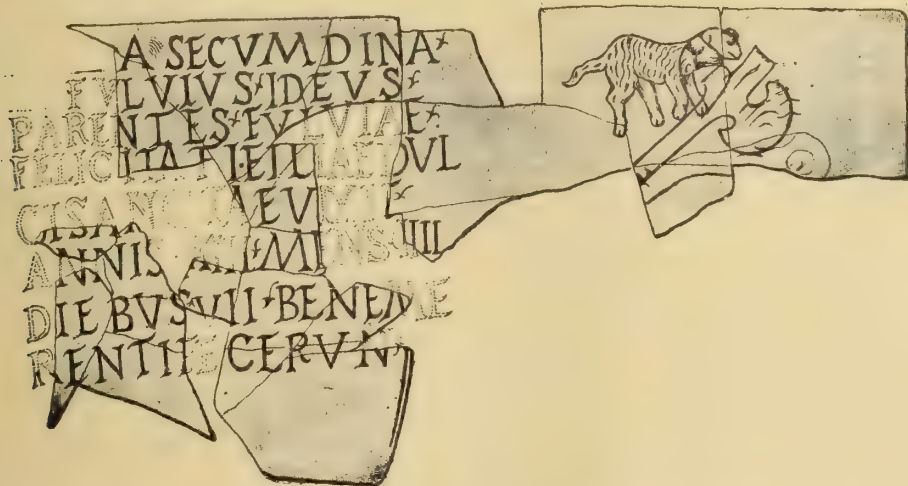 A SECVMDINA
FVLVIVS IDEVS
PARENTES FVLVIAE
FELICITATI FILIAE DVL
ANNIS MENS IIII
DIEBVS VII BENEME
RENTI FECERVN